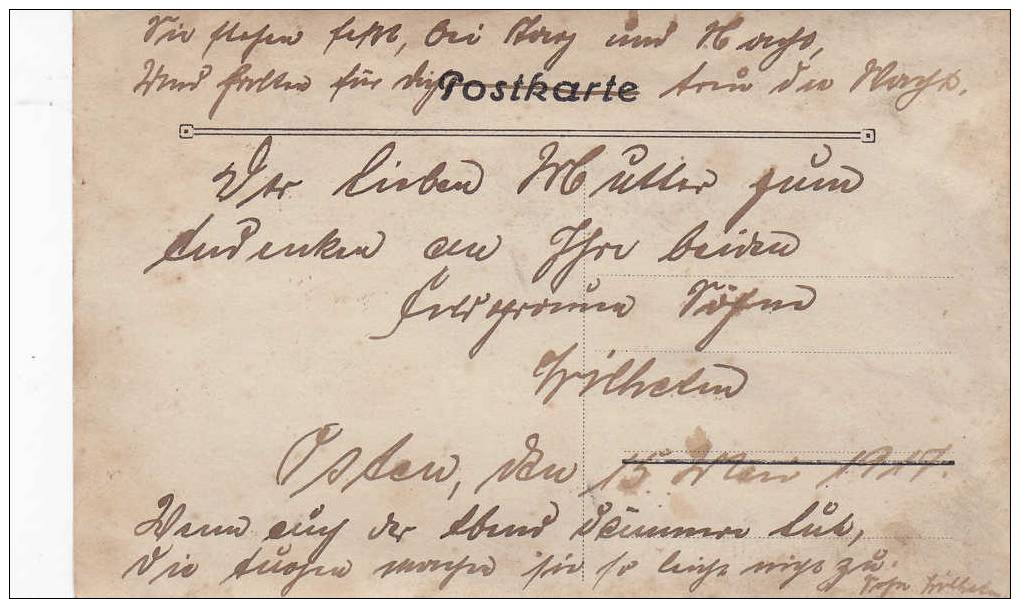 Sie stehen fest, bei Tag und Nacht,
Und halten für dich treu die Wacht.
Postkarte
Der lieben Mutter zum
Andenken an Ihre beiden
Feldgrauen Söhne
Wilhelm
Osten, den 15 Mai 1917.
Wenn auch der Abend dämmern tut,
Die Augen machen sie so leicht nicht zu.
Sohn Wilhelm